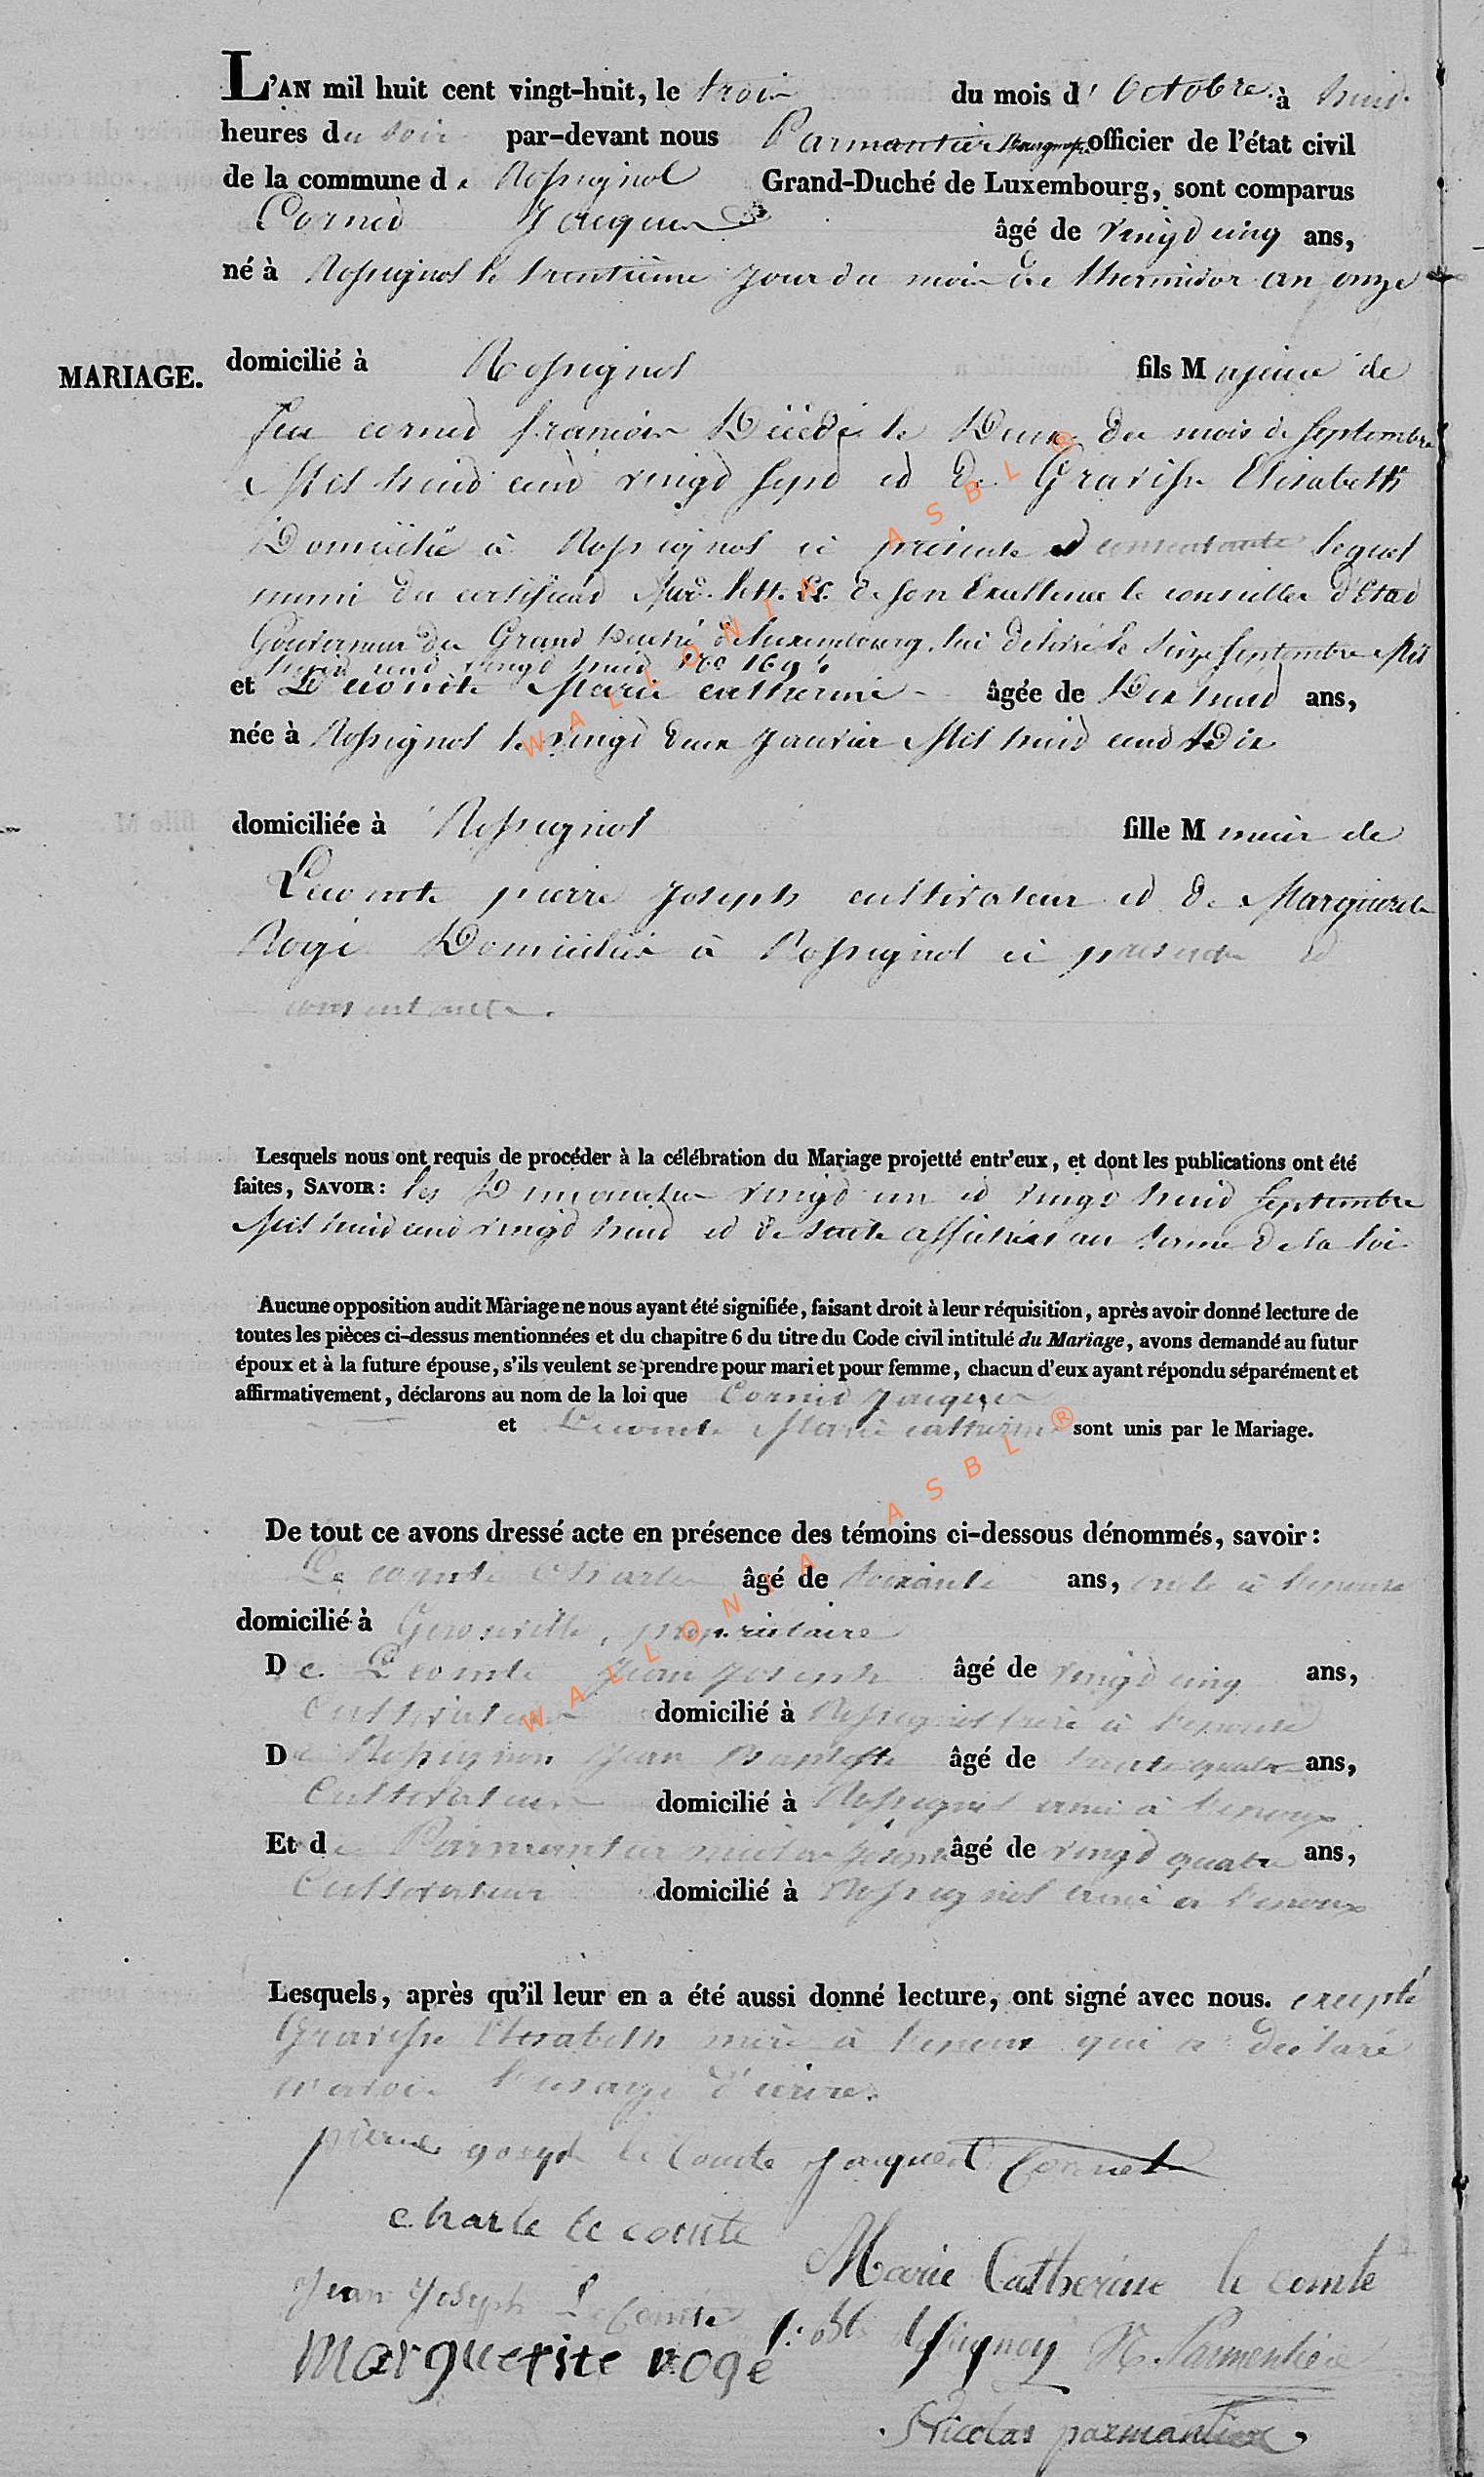 L'AN mil huit cent vingt-huit, le trois du mois d'Octobre à huid
heures du soir par-devant nous Parmantier Bourgmestre officier de l'état civil
de la commune de Rossignol Grand-Duché de Luxembourg, sont comparus
Corned Jacques âgé de vingd cinq ans,
né à Rossignol le trentième jour du mois de thermidor an onze
MARIAGE.
domicilié à Rossignol fils Majeur de
feu corned francois Décédé le Deux du mois de septembre
Mil huid cend vingd sepd ed de Gravisse Elisabeth
Domiciliée à Rossignol ci présente ed consentante lequel
muni du certificad de son Excellence le conseiller d'Etad
Gouverneur du Grand Duché de Luxembourg, lui delivré le seize septembre Mil
huid cend vingd huid No 1694
et Lecomte Marie catherine âgée de Dix huid ans,
née à Rossignol le vingd deux janvier Mil huid cend Dix
domiciliée à Rossignol fille Mineur de
Lecomte pierre joseph cultivateur ed de Marguerite
Rogé Domiciliés à Rossignol ci présents ed
consentants.
Lesquels nous ont requis de procéder à la célébration du Mariage projetté entr'eux, et dont les publications ont été
faites, SAVOIR: les Dimanches vingd un ed vingd huid septembre
Mil huid cend vingd huid ed de suite affichées au terme de la loi
Aucune opposition audit Mariage ne nous ayant été signifiée, faisant droit à leur réquisition, après avoir donné lecture de
toutes les pièces ci-dessus mentionnées et du chapitre 6 du titre du Code civil intitulé du Mariage, avons demandé au futur
époux et à la future épouse, s'ils veulent se prendre pour mari et pour femme, chacun d'eux ayant répondu séparément et
affirmativement, déclarons au nom de la loi que Corned Jacques
et Lecomte Marie catherine sont unis par le Mariage.
De tout ce avons dressé acte en présence des témoins ci-dessous dénommés, savoir:
Le comte Charles âgé de soixante ans, oncle à l'epouse
domicilié à Gerouville, propriétaire
De Lecomte Jean Joseph âgé de vingd cinq ans,
Cultivateur domicilié à Rossignol frère à l'epouse
De Rossignon Jean Baptiste âgé de trente quatre ans,
Cultivateur domicilié à Rossignol ami à l'epoux
Et de Parmantier nicolas joseph âgé de vingd quatre ans,
Cultivateur domicilié à Rossignol ami à l'epoux
Lesquels, après qu'il leur en a été aussi donné lecture, ont signé avec nous. excepté
Gravisse Elisabeth mère à l'epoux qui a declaré
n'avoir l'usage d'ecrire.
pierre joseph le Comte Jaques Cornet
charle le comte
Marie Catherine le comte
Jean Joseph Le Comte
Marguerite rogé
N. Parmentier
Nicolas parmantier
WALLONIA ASBL ®
WALLONIA ASBL ®